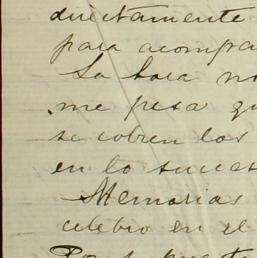 directamente
para acompa
La Sara no
me pesa qu
se cobren los
en lo suces
Memorias
celebro en el
Por